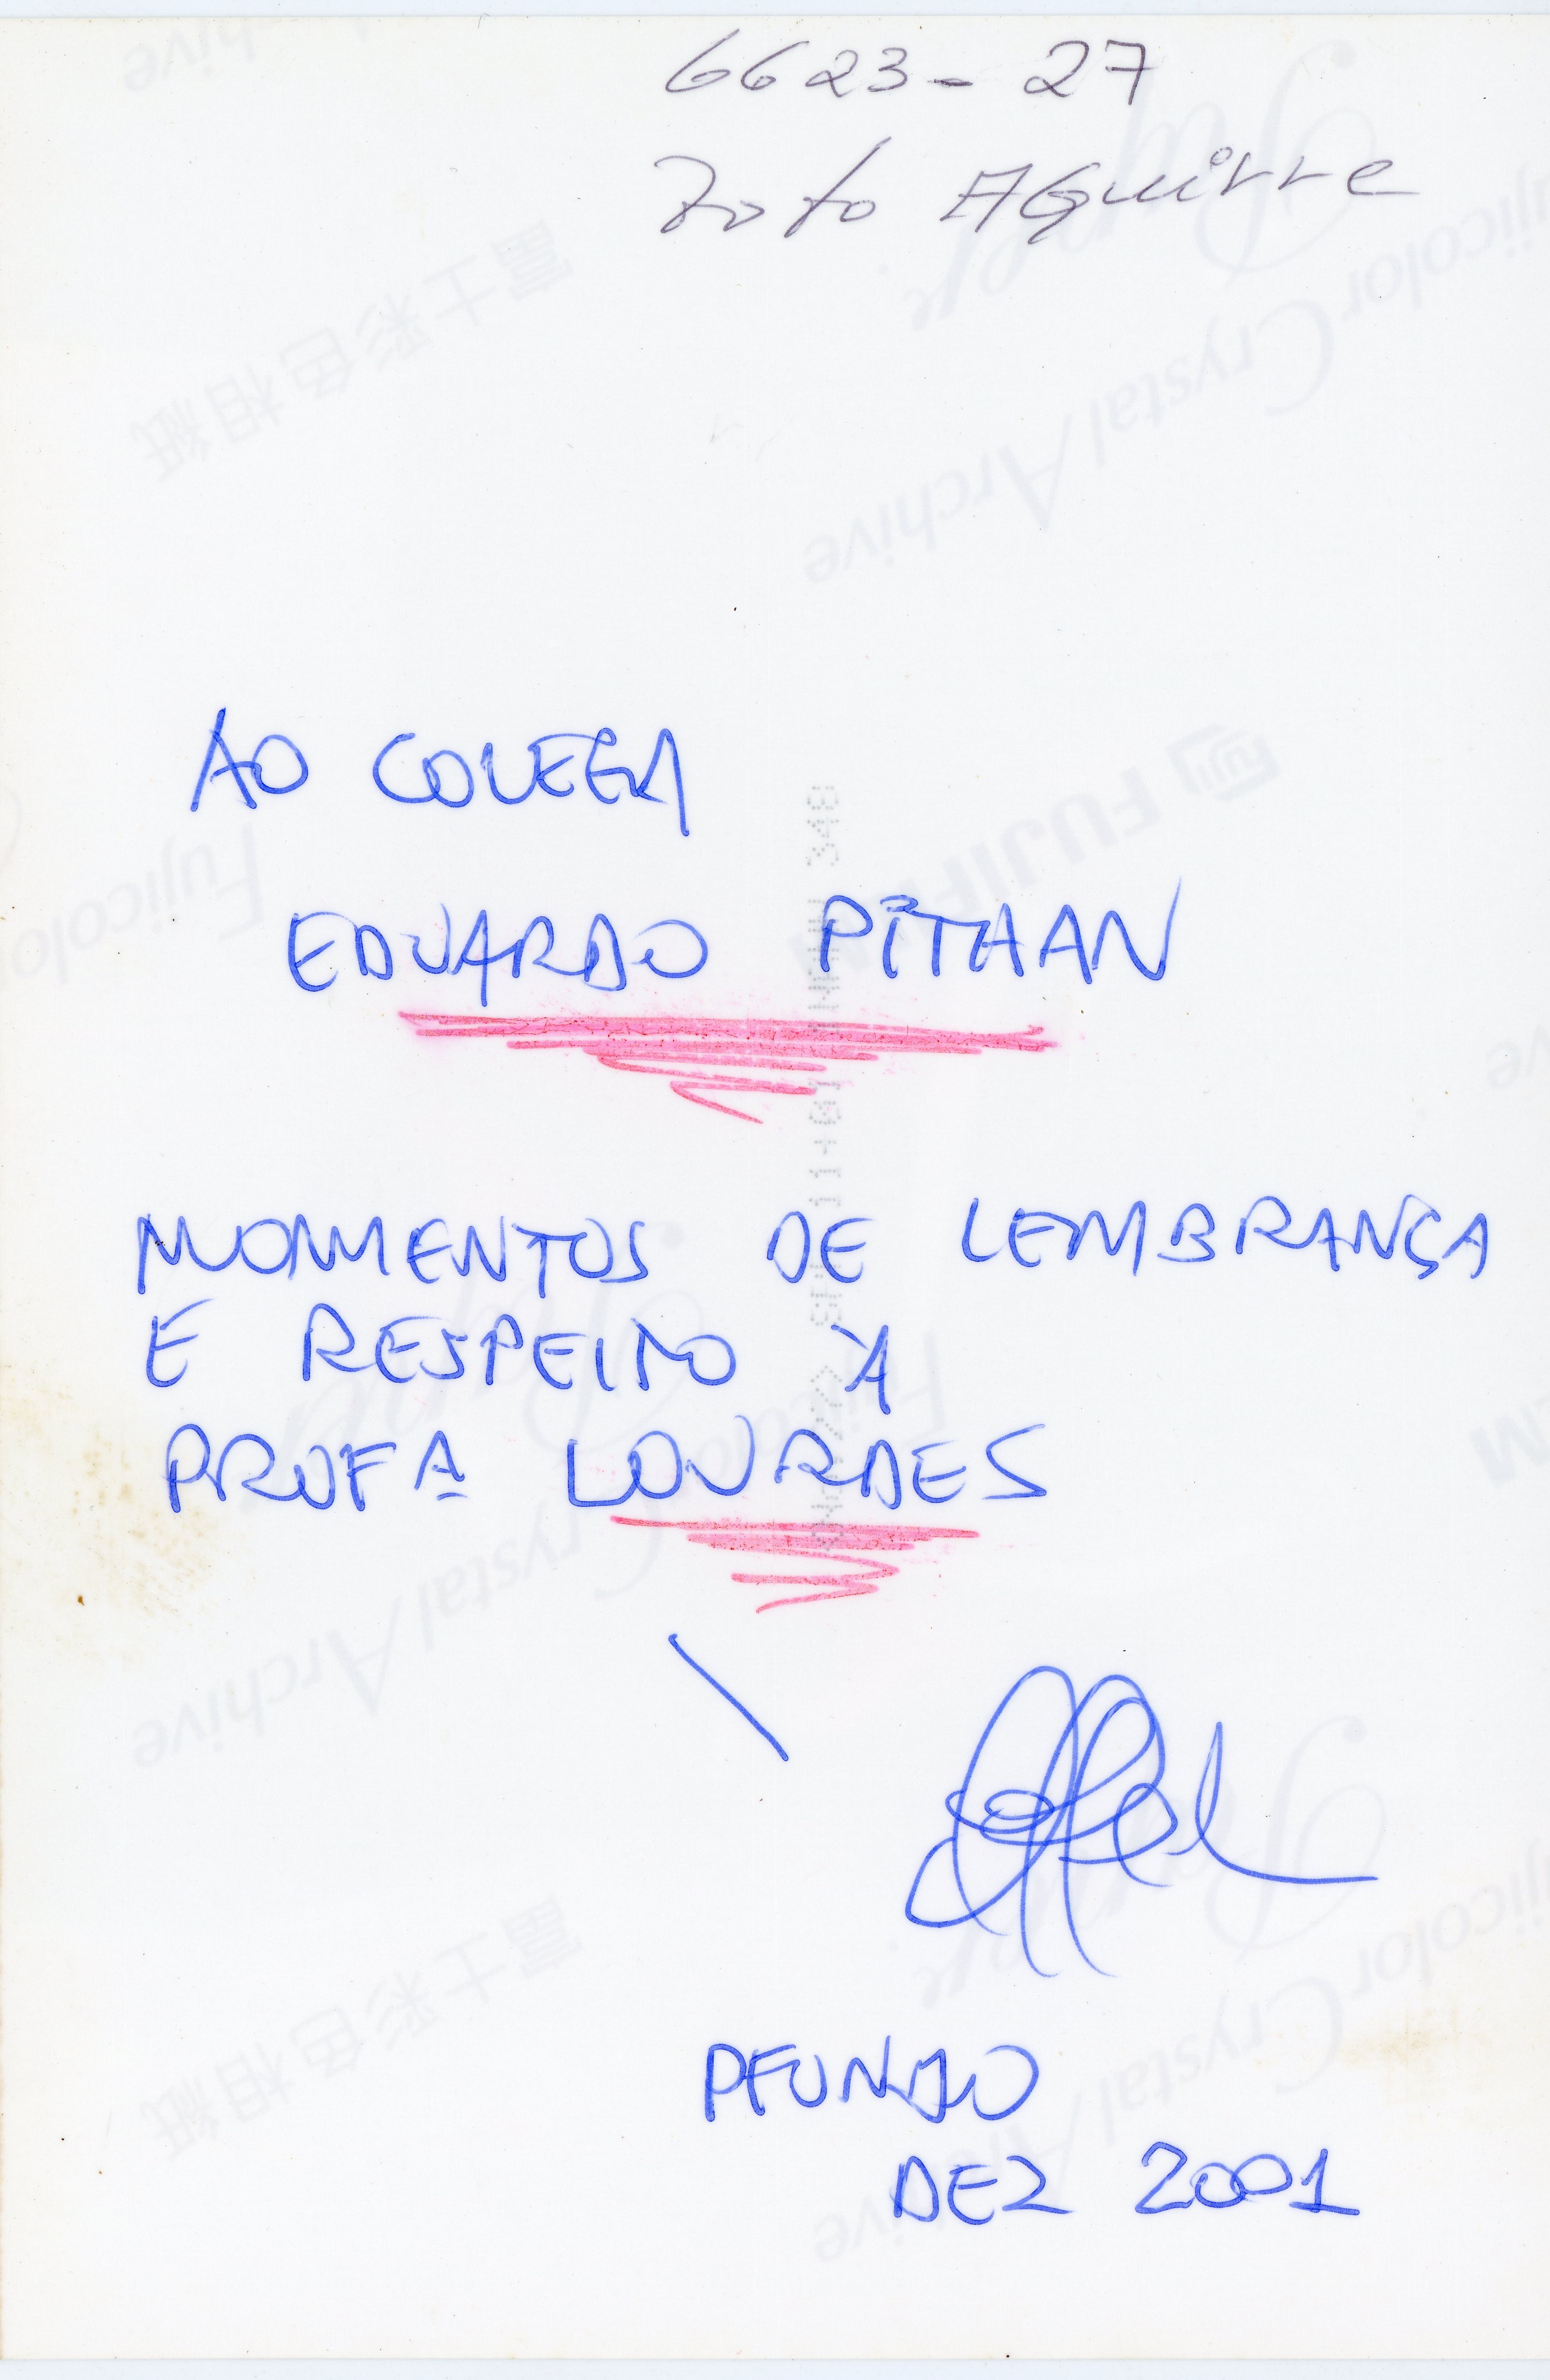 6623-27
Foto Aguirre
AO COLEGA
EDUARDO PITHAN
MOMENTOS DE LEMBRANÇA
E RESPEITO À
PROFA LOURDES
PFUNDO
DEZ 2001
富士彩色相紙
Fujicolor Crystal Archive
Paper
FUJIFILM